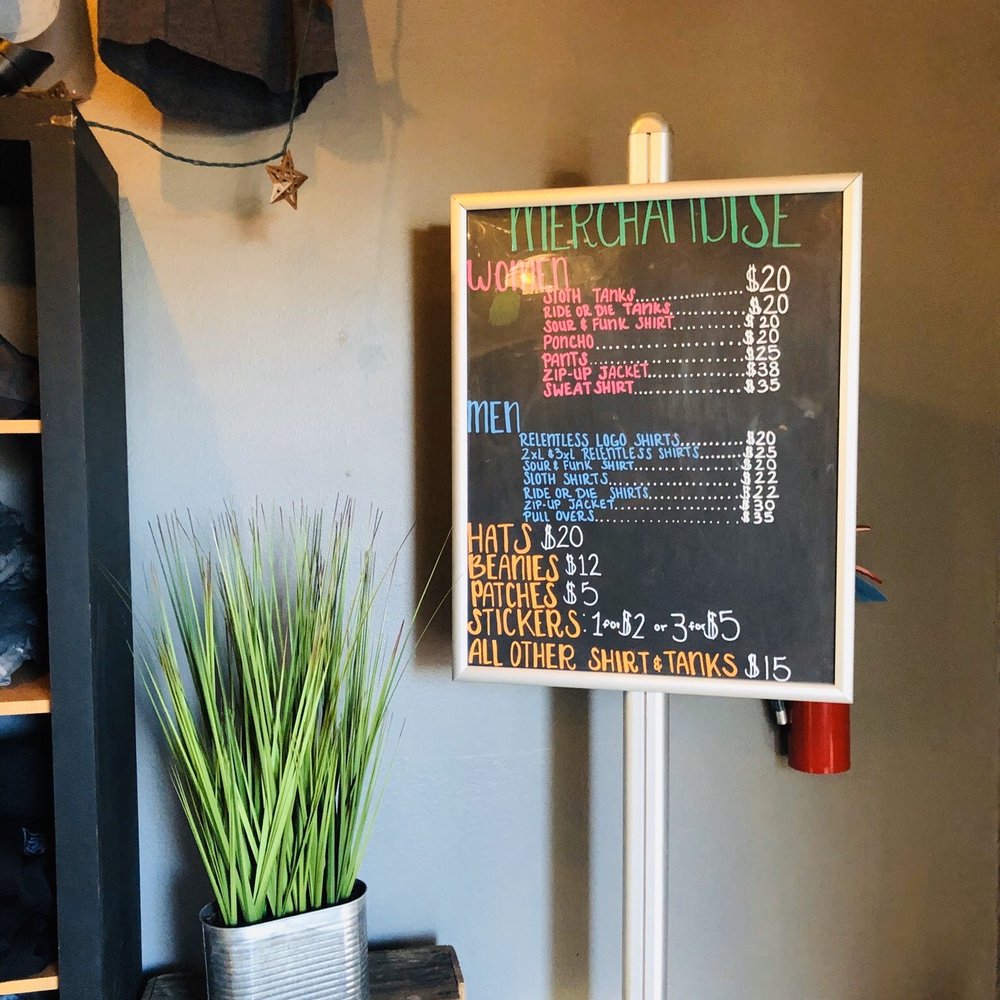 MERCHANDISE
WOMEN
SLOTH TANKS.................$20
RIDE OR DIE TANKS...........$20
SOUR & FUNK SHIRT..........$20
PONCHO......................$20
PANTS.......................$25
ZIP-UP JACKET...............$38
SWEATSHIRT..................$35
MEN
RELENTLESS LOGO SHIRTS...........$20
2XL & 3XL RELENTLESS SHIRTS.......$25
SOUR & FUNK SHIRT.................$20
SLOTH SHIRTS......................$22
RIDE OR DIE SHIRTS................$22
ZIP-UP JACKET.....................$30
PULL OVERS........................$35
HATS $20
BEANIES $12
PATCHES $5
STICKERS: 1 for $2 or 3 for $5
ALL OTHER SHIRT & TANKS $15